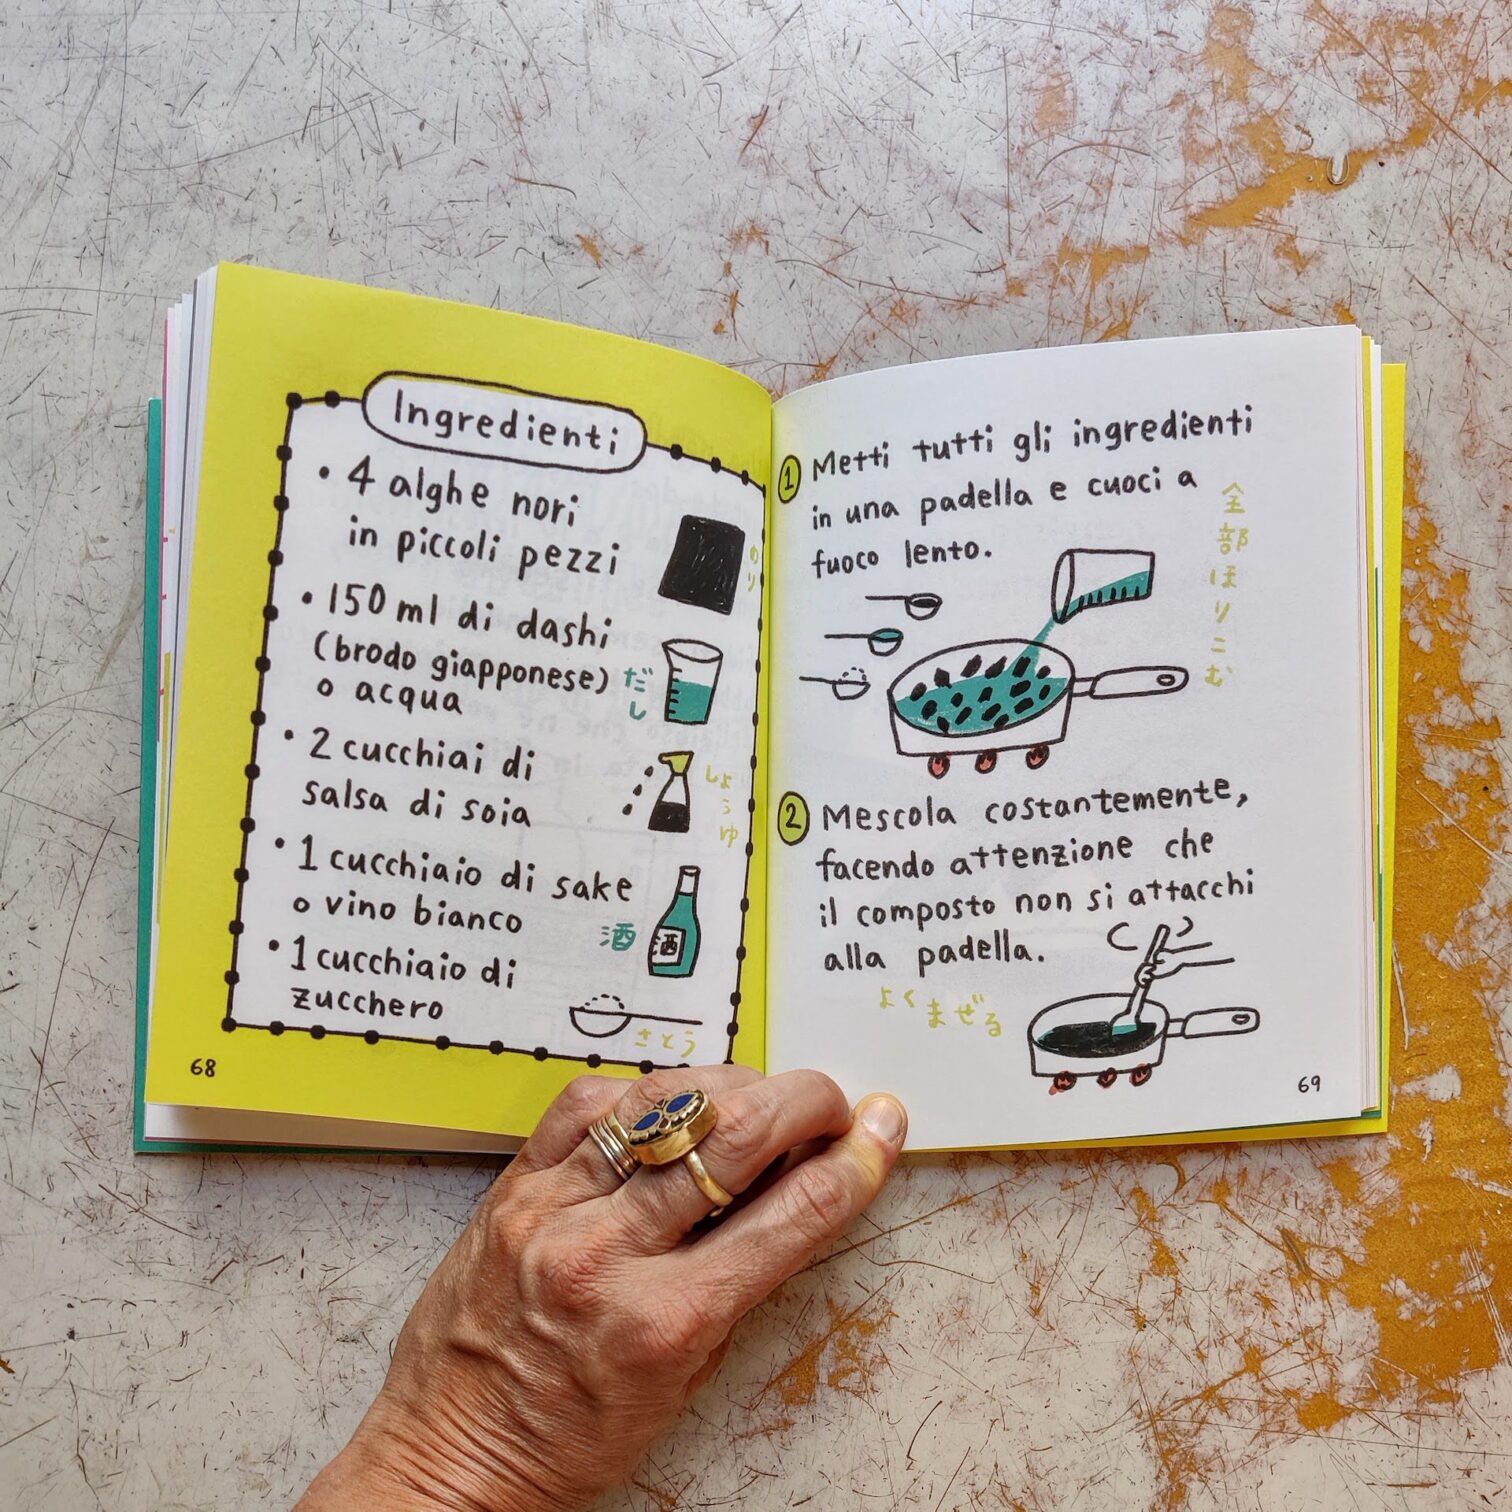 Ingredienti
• 4 alghe nori
in piccoli pezzi
のり
• 150 ml di dashi
(brodo giapponese)
o acqua
だし
• 2 cucchiai di
salsa di soia
しょうゆ
• 1 cucchiaio di sake
o vino bianco
酒
酒
• 1 cucchiaio di
zucchero
さとう
68
1 Metti tutti gli ingredienti
in una padella e cuoci a
fuoco lento.
全部ほりこむ
2 Mescola costantemente,
facendo attenzione che
il composto non si attacchi
alla padella.
よくまぜる
69